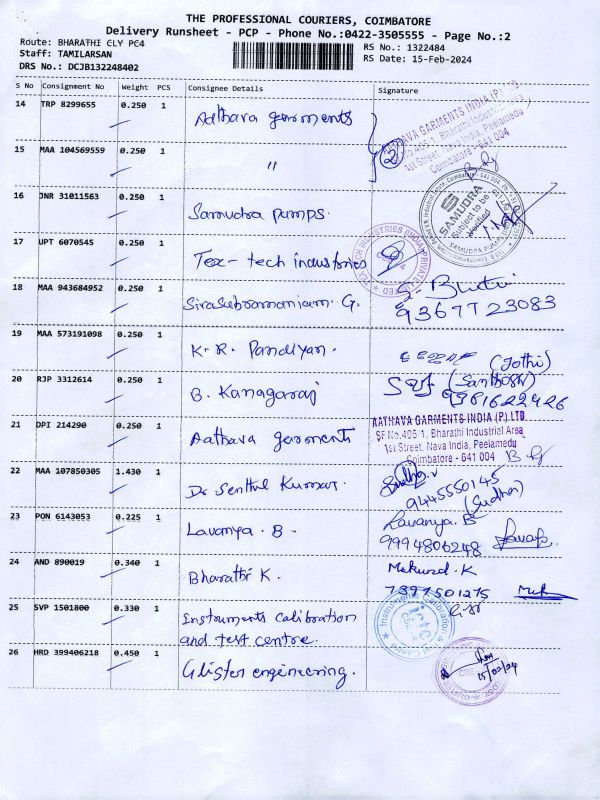 THE PROFESSIONAL COURIERS, COIMBATORE
Delivery Runsheet - PCP - Phone No.:0422-3505555 - Page No.:2
Route: BHARATHI CLY PC4
RS No.: 1322484
Staff: TAMILARSAN
RS Date: 15-Feb-2024
DRS No.: DCJB132248402
S No Consignment No Weight PCS Consignee Details Signature
14 TRP 8299655 0.250 1 Aathava garments
AATHAVA GARMENTS INDIA (P) LTD
Bharathi Industrial Area
1st Street, Nava India, Peelamedu
Coimbatore - 641 004
15 MAA 104569559 0.250 1 "
2
16 JNR 31011563 0.250 1 Samudra pumps.
SAMUDRA
Subject to be
Verified
17 UPT 6070545 0.250 1 Tex-tech industries
18 MAA 943684952 0.250 1 Sivasubramaniam. G.
9367723083
19 MAA 573191098 0.250 1 K. R. Pandiyan.
(Jothi)
20 RJP 3312614 0.250 1 B. Kanagaraj
(Santhosh)
9361622426
21 DPI 214290 0.250 1 Aathava garments
AATHAVA GARMENTS INDIA (P) LTD
SF No.405/1, Bharathi Industrial Area
1st Street, Nava India, Peelamedu
Coimbatore - 641 004
22 MAA 107850305 1.430 1 Dr Senthil Kumar.
9445550145
(Sudha)
23 PON 6143053 0.225 1 Lavanya. B.
Lavanya. B
9994806248
24 AND 890019 0.340 1 Bharathi K.
Mukund. K
7397501275
25 SVP 1501800 0.330 1 Instruments calibration
and test centre.
ictc
26 HRD 399406218 0.450 1 Glister engineering.
15/02/24